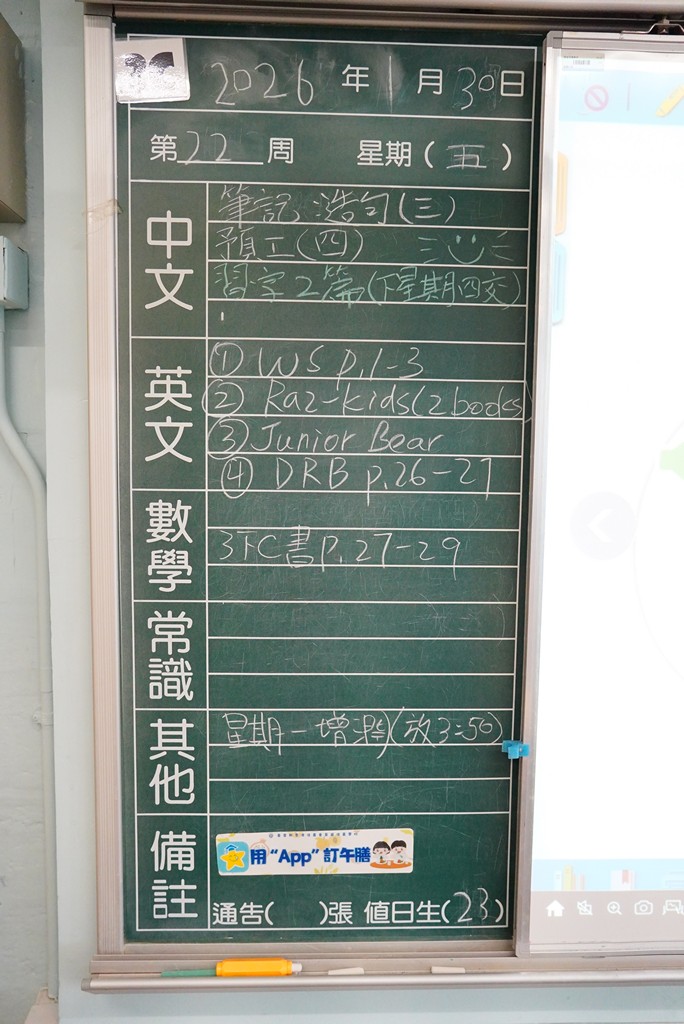 2026 年 1 月 30 日
第 22 周 星期 ( 五 )
中文
筆記、造句(三)
預工(四)
習字2篇(下星期四交)
英文
① WS p.1-3
② Raz-kids(2 books)
③ Junior Bear
④ DRB p.26-27
數學
3下C書P.27-29
常識
其他
星期一增潤(放3:50)
備註
用“App”訂午膳
通告( )張 值日生(23)